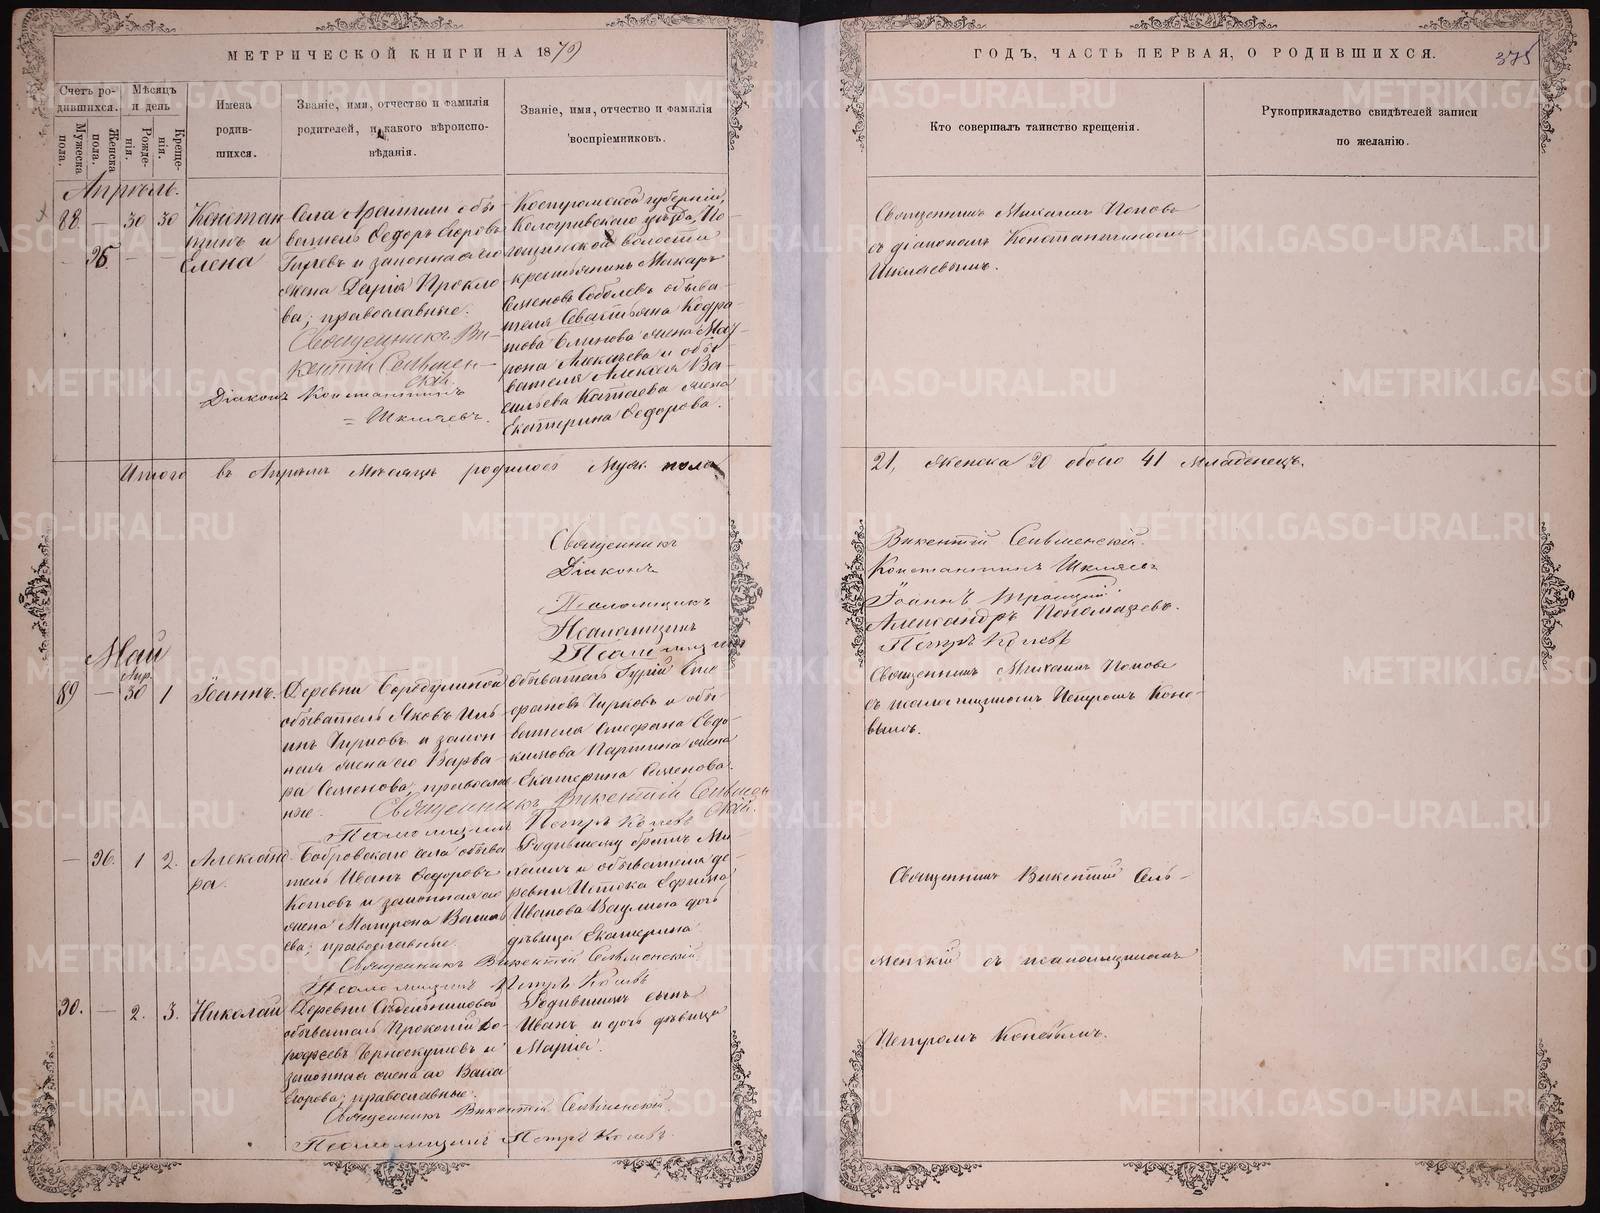 МЕТРИЧЕСКОЙ КНИГИ НА 1879
ГОДЪ, ЧАСТЬ ПЕРВАЯ, О РОДИВШИХСЯ.
375
Счетъ ро-
дившихся.
Мѣсяцъ
и день
Мужеска
пола.
Женска
пола.
Рожде-
нія.
Креще-
нія.
Имена
родив-
шихся.
Званіе, имя, отчество и фамилія
родителей, и какого вѣроиспо-
вѣданія.
Званіе, имя, отчество и фамилія
воспріемниковъ.
Кто совершалъ таинство крещенія.
Рукоприкладство свидѣтелей записи
по желанію.
Апрѣль.
88. — 30 30
Констан
тинъ и
95. — —
Елена
Села Арамили обы-
ватель Ѳедоръ Егоровъ
и законная его
жена Дарія Прокло
ва; православные.
Священникъ Ви-
кентій Сельмен-
скій.
Діаконъ Константинъ
= Шкляевъ.
Костромской губерніи,
Кологривскаго уѣзда,
волости
крестьянинъ Макаръ
Семеновъ Соболевъ обыва-
теля Севастьяна Кодра-
това жена Мат-
рона Алексѣева и обы-
вателя Алексѣя Ва-
сильева Катаева жена
Екатерина Ѳедорова.
Священникъ Михаилъ Поповъ
съ діакономъ Константиномъ
Шкляевымъ.
Итого въ Апрѣлѣ мѣсяцѣ родилось Муж. пола
21, Женска 20 обоего 41 младенецъ.
Священникъ
Діаконъ
Псаломщикъ
Псаломщикъ
Псаломщикъ
Викентій Сельменскій.
Константинъ Шкляевъ
Іоаннъ Троицкій
Александръ Пономаревъ.
Петръ Коневъ
Май
Апр.
89 — 30 1
Іоаннъ.
Деревни Бородулиной
обыватель Яковъ Иль-
инъ Чирковъ и закон
ная жена его Варва-
ра Семенова, православ
ные.
Священникъ Викентій Сельмен
скій.
Псаломщикъ Петръ Коневъ
обыватель Гурій Сте
фановъ Чирковъ и обы-
вателя Стефана Евдо-
кимова Паршина жена
Екатерина Семенова.
Священникъ Михаилъ Поповъ
съ псаломщикомъ Петромъ Коне-
вымъ.
— 96. 1 2.
Александ
ра.
Бобровскаго села обыва
тель Иванъ Ѳедоровъ
Котовъ и законная его
жена Матрона Василь
ева; православные.
Священникъ Викентій Сельменскій
Псаломщикъ Петръ Коневъ
Родившему братъ Ми-
хаилъ и обывателя де-
ревни Истока Ефима
Иванова Ваулина дочь
дѣвица Екатерина
Священникъ Викентій Сель-
менскій съ псаломщикомъ
Петромъ Коневымъ.
90. — 2. 3.
Николай
Деревни
обыватель Прокопій До-
роѳеевъ Черноскутовъ и
законная жена его Васса
Егорова; православные.
Священникъ Викентій Сельменскій
Псаломщикъ Петръ Коневъ.
Родившихъ сынъ
Иванъ и дочь дѣвица
Марія.
METRIKI.GASO-URAL.RU